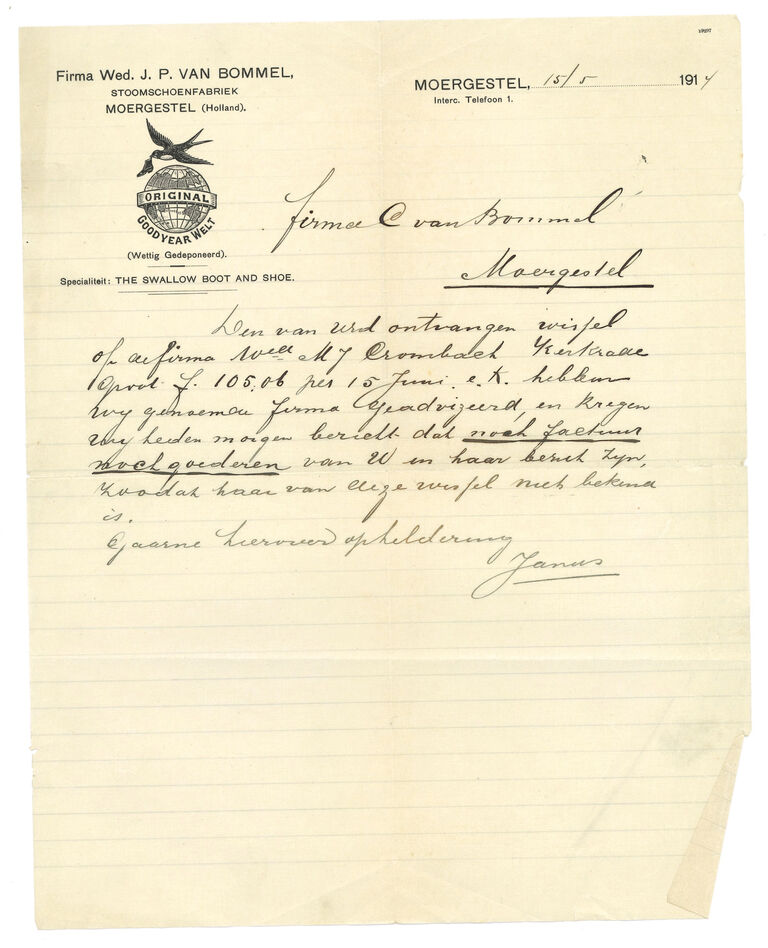 Firma Wed. J. P. VAN BOMMEL,
STOOMSCHOENFABRIEK
MOERGESTEL (Holland).
ORIGINAL
GOODYEAR WELT
(Wettig Gedeponeerd).
Specialiteit: THE SWALLOW BOOT AND SHOE.
MOERGESTEL, 15/5 1914
Interc. Telefoon 1.
firma C van Bommel
Moergestel
Den van Urd ontvangen wissel
op de firma Wed M J Crombach Kerkrade
groot f. 105,06 per 15 Juni e.k. hebben
wy genoemde firma geadvizeerd, en kregen
wy heden morgen bericht dat noch factuur
noch goederen van U in haar bezit zyn,
zoodat haar van deze wissel niet bekend
is.
Gaarne hierover opheldering
Janus